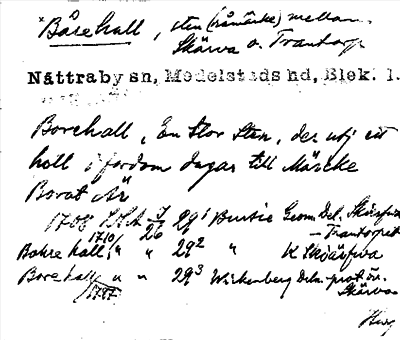 *Bårehall, sten (råmärke) mellan
Skärva o. Trantorp
Nättraby sn, Medelstads hd, Blek. l.
Borehall, En stor Sten, der utj ett
håll i fordom dagar till Märcke
Borat Är
1708 LMA 7/26 29¹ Burtie Geom. Del. Skärfwa
– Trantorpet
Bohre hall 1710/" " 29² " K Skiärfwa
Borehall " " 29³ Wirkenberg Deln. prot. öv.
/1797 Skärva